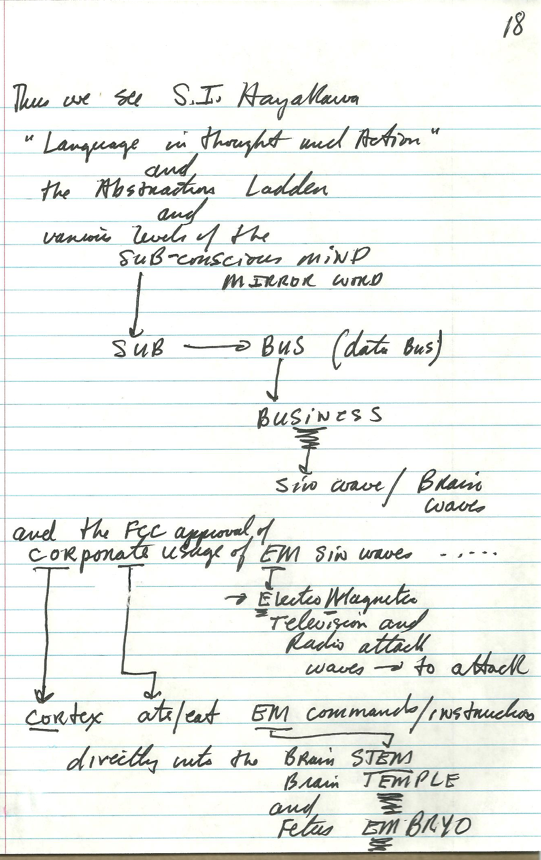 18
Thus we see S.I. Hayakawa
"Language in thought and Action"
and
the Abstraction Ladden
and
various levels of the
SUB-conscious MIND
MIRROR WORD
SUB → BUS (data Bus)
BUSINESS
Sin wave/ Brain
waves
and the FCC approval of
CORporate usage of EM sin waves .....
→ ElectroMagnetic
Television and
Radio attack
waves → to attack
Cortex ate/eat EM commands/instructions
directly into the Brain STEM
Brain TEMPLE
and
Fetus EMBRYO